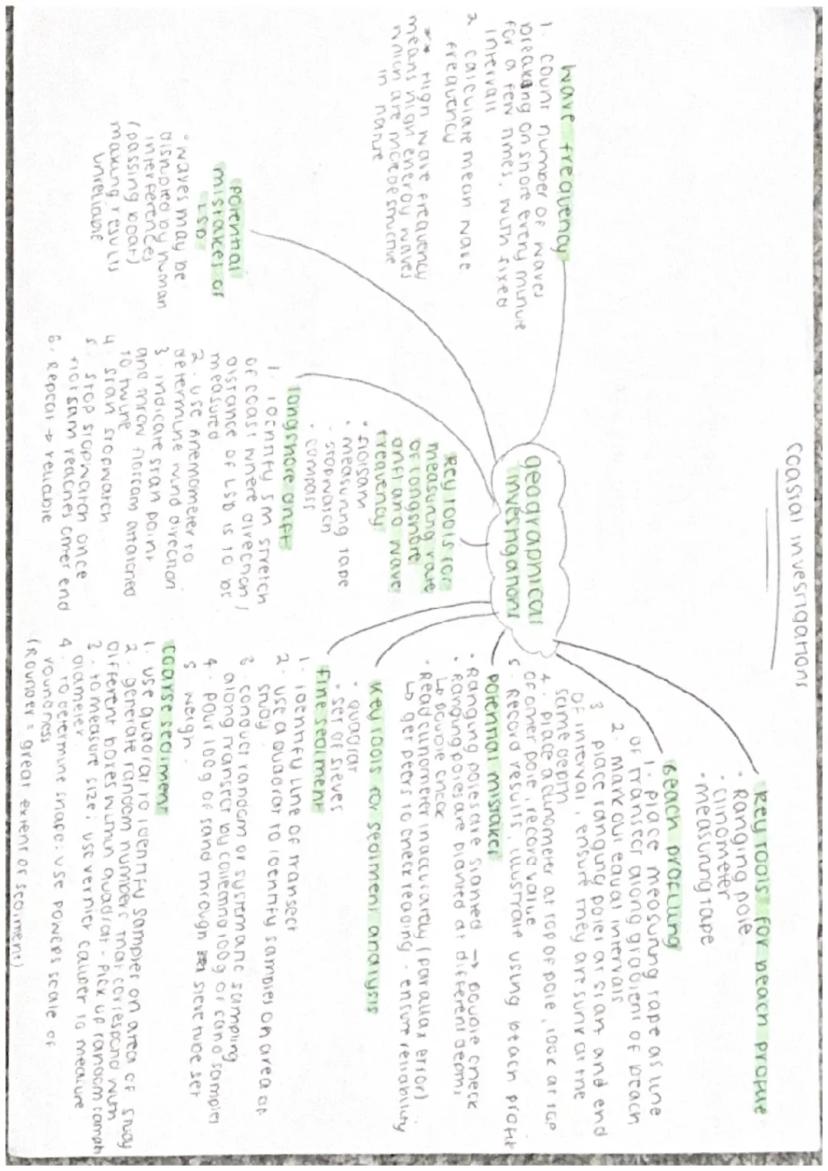 coastal investigations
geographical
investigations
key tools for beach profile
• Ranging pole
• clinometer
• measuring tape
Beach profiling
1. place measuring tape as line
of transect along gradient of beach
2. mark out equal intervals
3 place ranging poles at start and end
of interval, ensure they are sunk at the
same depth
4. place a clinometer at top of pole, look at top
of other pole, record value
5. Record results, illustrate using beach profile
potential mistakes
• Ranging poles are slanted → double check
• Ranging poles are planted at different depths
↳ double check
• Read clinometer inaccurately (parallax error)
↳ get peers to check reading - ensure reliability
key tools for sediment analysis
• quadrat
• set of sieves
fine sediment
1. identify line of transect
2. use a quadrat to identify samples on area of
study
3. conduct random or systematic sampling
along transect by collecting 100g of sand samples
4. pour 100g of sand through sieve tube set
5 weigh.
coarse sediment
1. use quadrat to identify samples on area of study
2. generate random numbers that correspond with
different boxes within quadrat - pick up random sample
3. to measure size: use vernier caliper to measure
diameter
4. to determine shape: use powers scale of
roundness
(Rounder = great extent of sediment)
key tools for
measuring rate
of longshore
drift and wave
frequency
• flotsam
• measuring tape
• stopwatch
• compass
longshore drift
1. identify 5m stretch
of coast where direction /
distance of LSD is to be
measured
2. use anemometer to
determine wind direction
3 indicate start point
and throw flotsam attached
to twine
4. start stopwatch
5. stop stopwatch once
flotsam reaches other end
6. Repeat → reliable
potential
mistakes of
LSD
• waves may be
disrupted by human
interferences
(passing boat)
making results
unreliable
wave frequency
1. count number of waves
breaking on shore every minute
for a few times, with fixed
interval
2 calculate mean wave
frequency
** High wave frequency
means high energy waves
which are more destructive
in nature